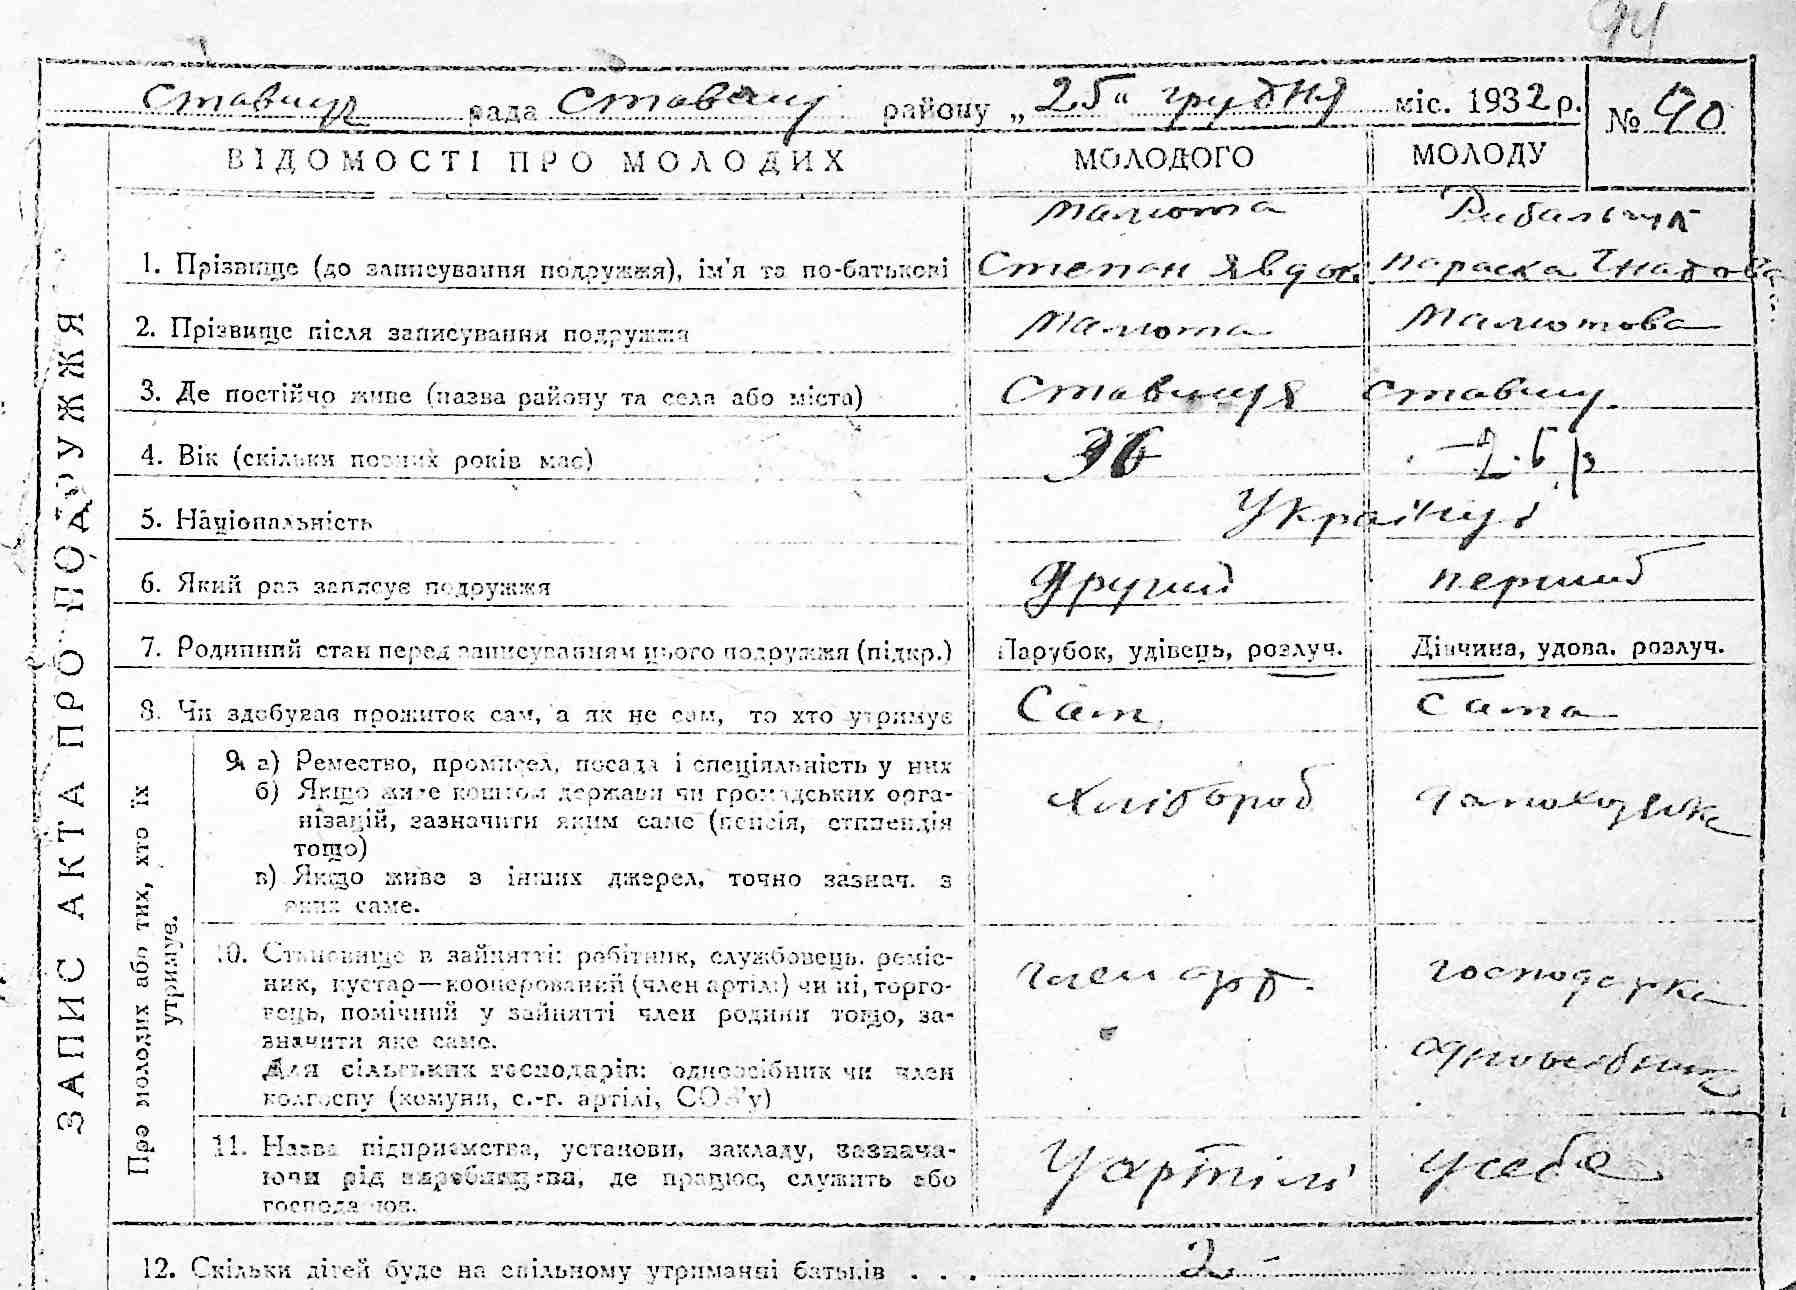 94
Ставищ. рада Ставищ. району „25" грудня міс. 1932 р. № 90
ВІДОМОСТІ ПРО МОЛОДИХ МОЛОДОГО МОЛОДУ
Малюта Рибальчук
1. Прізвище (до записування подружжя), ім'я та по-батькові Степан Явдок. Параска Гнатова
2. Прізвище після записування подружжя Малюта Малютова
3. Де постійчо живе (назва району та села або міста) Ставища Ставищ.
4. Вік (скільки повних років має) 36 26 р
5. Національність Українці
6. Який раз записує подружжя Другий перший
7. Родинний стан перед записуванням цього подружжя (підкр.) Парубок, удівець, розлуч. Дівчина, удова, розлуч.
8. Чи здобував прожиток сам, а як не сам, то хто утримує Сам, сама
ЗАПИС АКТА ПРО ПОДРУЖЖЯ
Про молодих або тих, хто їх
утримує.
9. а) Ремество, промисел, посада і спеціяльність у них
б) Якщо живе коштом держави чи громадських орга-
нізацій, зазначити яким саме (пенсія, стипендія
тощо)
в) Якщо живе з інших джерел, точно зазнач. з
яких саме.
хлібороб домохозяйка
10. Становище в зайнятті: робітник, службовець, реміс-
ник, кустар—кооперований (член артілі) чи ні, торго-
вець, помічний у зайнятті член родини тощо, за-
значити яке саме.
Для сільських господарів: одноосібник чи член
колгоспу (комуни, с.-г. артілі, СОЗ'у)
член арт. господарка
одноосібниц
11. Назва підприємства, установи, закладу, зазнача-
ючи рід виробництва, де працює, служить або
господарює.
У артілі у себе
12. Скільки дітей буде на спільному утриманні батьків . . . 2